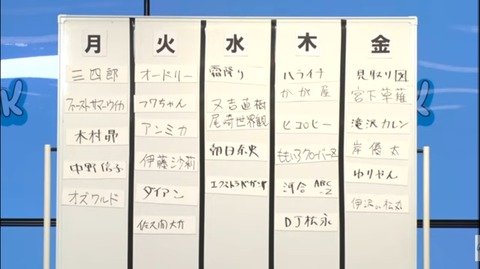 月
三四郎
ファーストサマーウイカ
木村昴
中野信子
オズワルド
火
オードリー
フワちゃん
アンミカ
伊藤沙莉
ダイアン
佐久間大介
水
霜降り
又吉直樹
尾崎世界観
朝日奈央
木
ハライチ
かが屋
ヒコロヒー
ももいろクローバーZ
河合 ABC
-Z
DJ松永
金
見取り図
宮下草薙
滝沢カレン
岸優太
ゆりやん
K